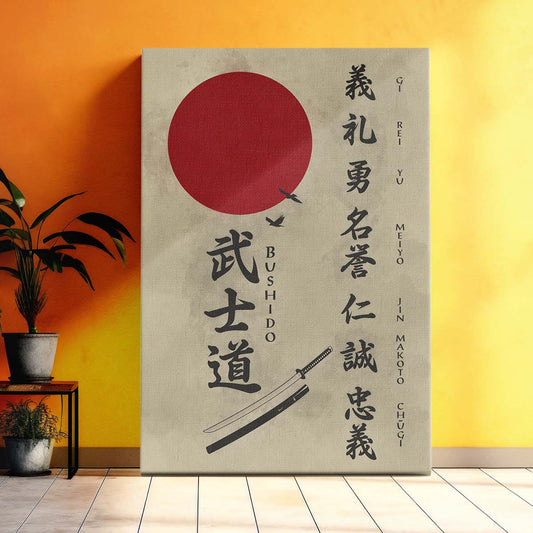 武士道
BUSHIDO
義礼勇名誉仁誠忠義
GI REI YU MEIYO JIN MAKOTO CHŪGI